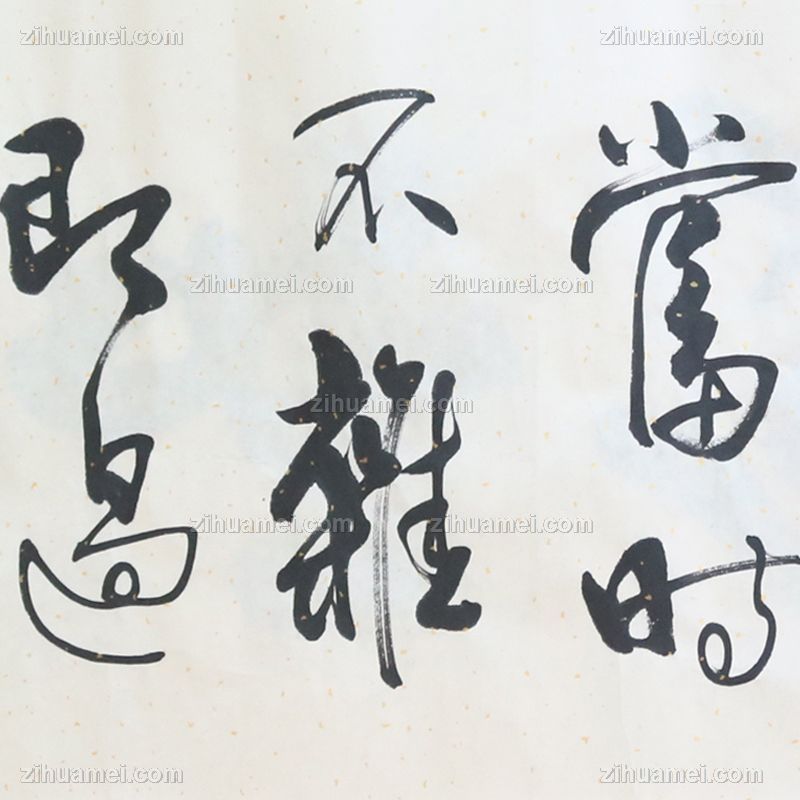 當時
不雜
即過
zihuamei.com
zihuamei.com
zihuamei.com
zihuamei.com
zihuamei.com
zihuamei.com
zihuamei.com
zihuamei.com
zihuamei.com